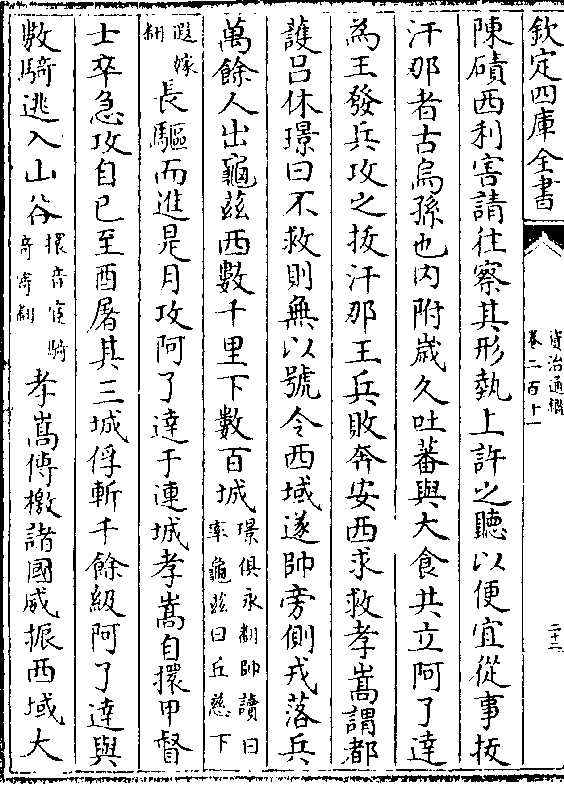 欽定四庫全書
資治通鑑
卷二百十一
二十二
陳磧西利害請往察其形埶上許之聽以便宜從事拔
汗那者古烏孫也内附歲久吐蕃與大食共立阿了達
為王發兵攻之拔汗那王兵敗奔安西求救孝嵩謂都
護吕休璟曰不救則無以號令西域遂帥旁側戎落兵
萬餘人出龜兹西數千里下數百城璟俱永翻帥讀曰率龜兹曰丘慈下
遐嫁翻長驅而進是月攻阿了達于連城孝嵩自擐甲督
士卒急攻自巳至酉屠其三城俘斬千餘級阿了達與
數騎逃入山谷擐音宦騎奇寄翻孝嵩傳檄諸國威振西域大